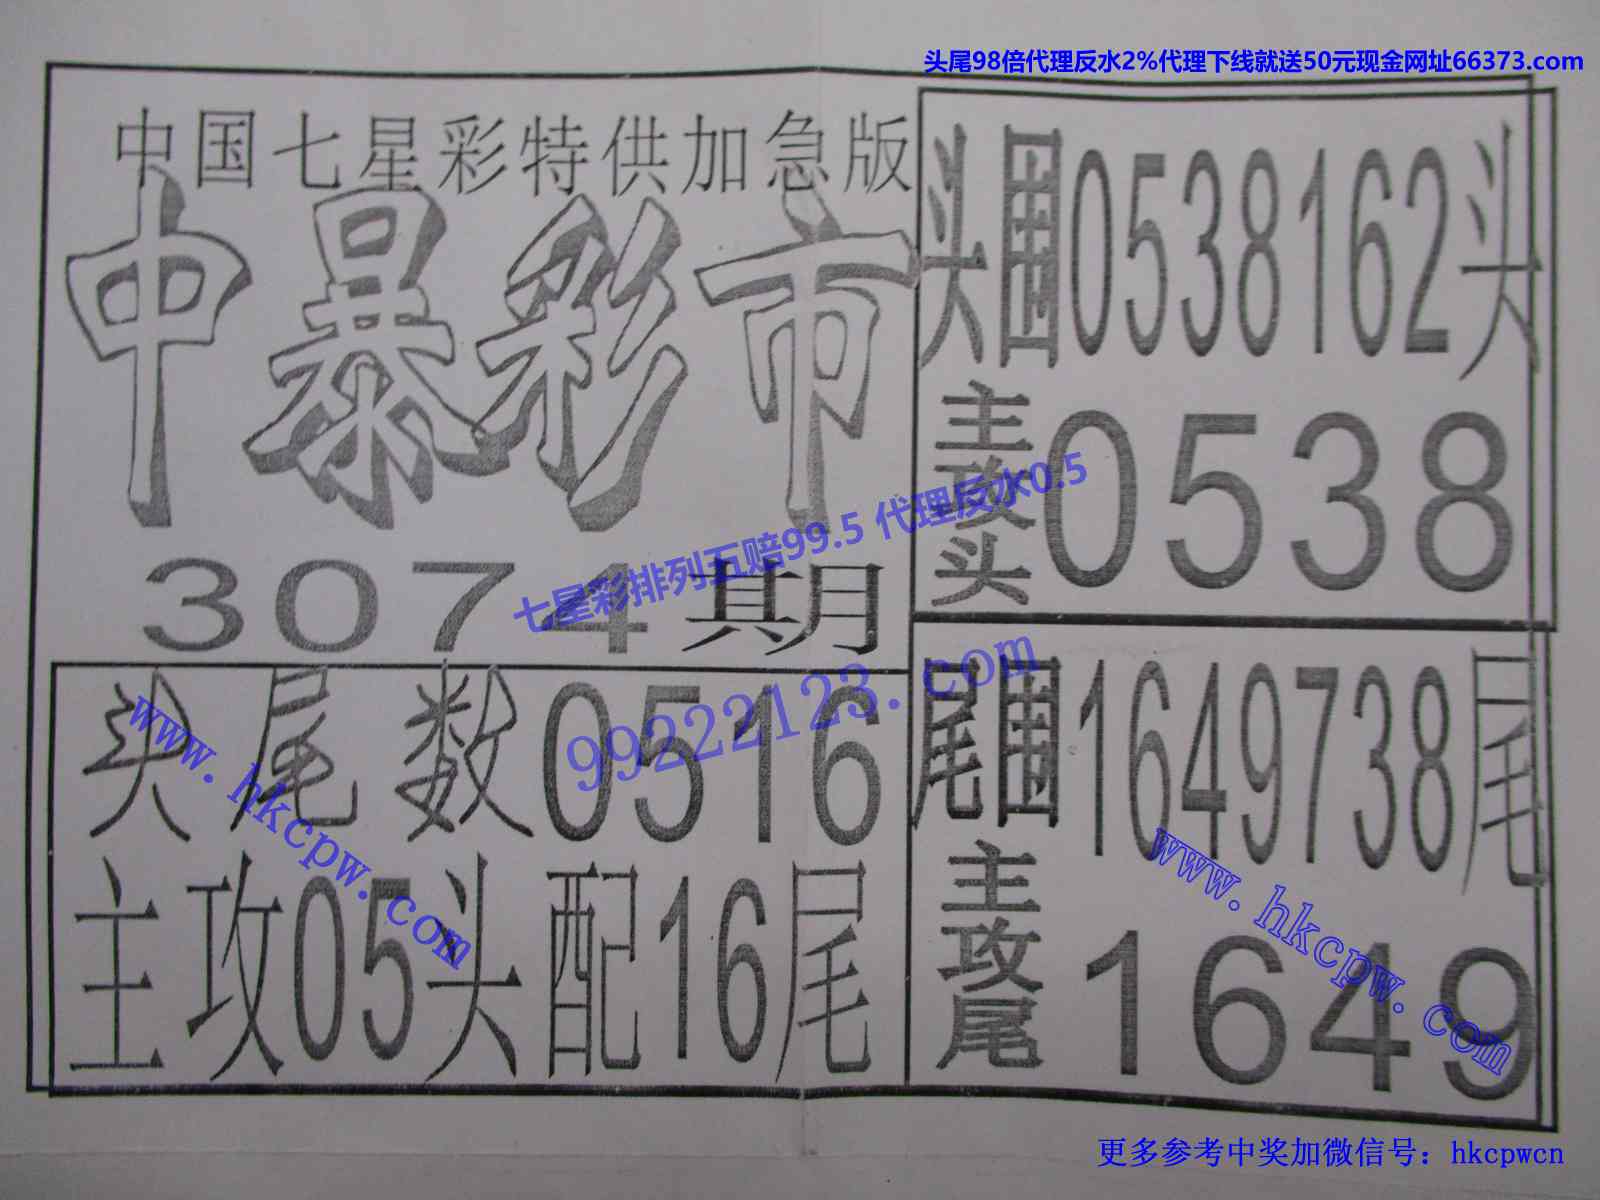 头尾98倍代理反水2%代理下线就送50元现金网址66373.com
中国七星彩特供加急版
中暴彩市
3074期
头围0538162头
主攻头0538
七星彩排列五赔99.5 代理反水0.5
99222123.com
头尾数0516
主攻05头配16尾
www.hkcpw.com
尾围1649738尾
主攻尾1649
www.hkcpw.com
更多参考中奖加微信号：hkcpwcn